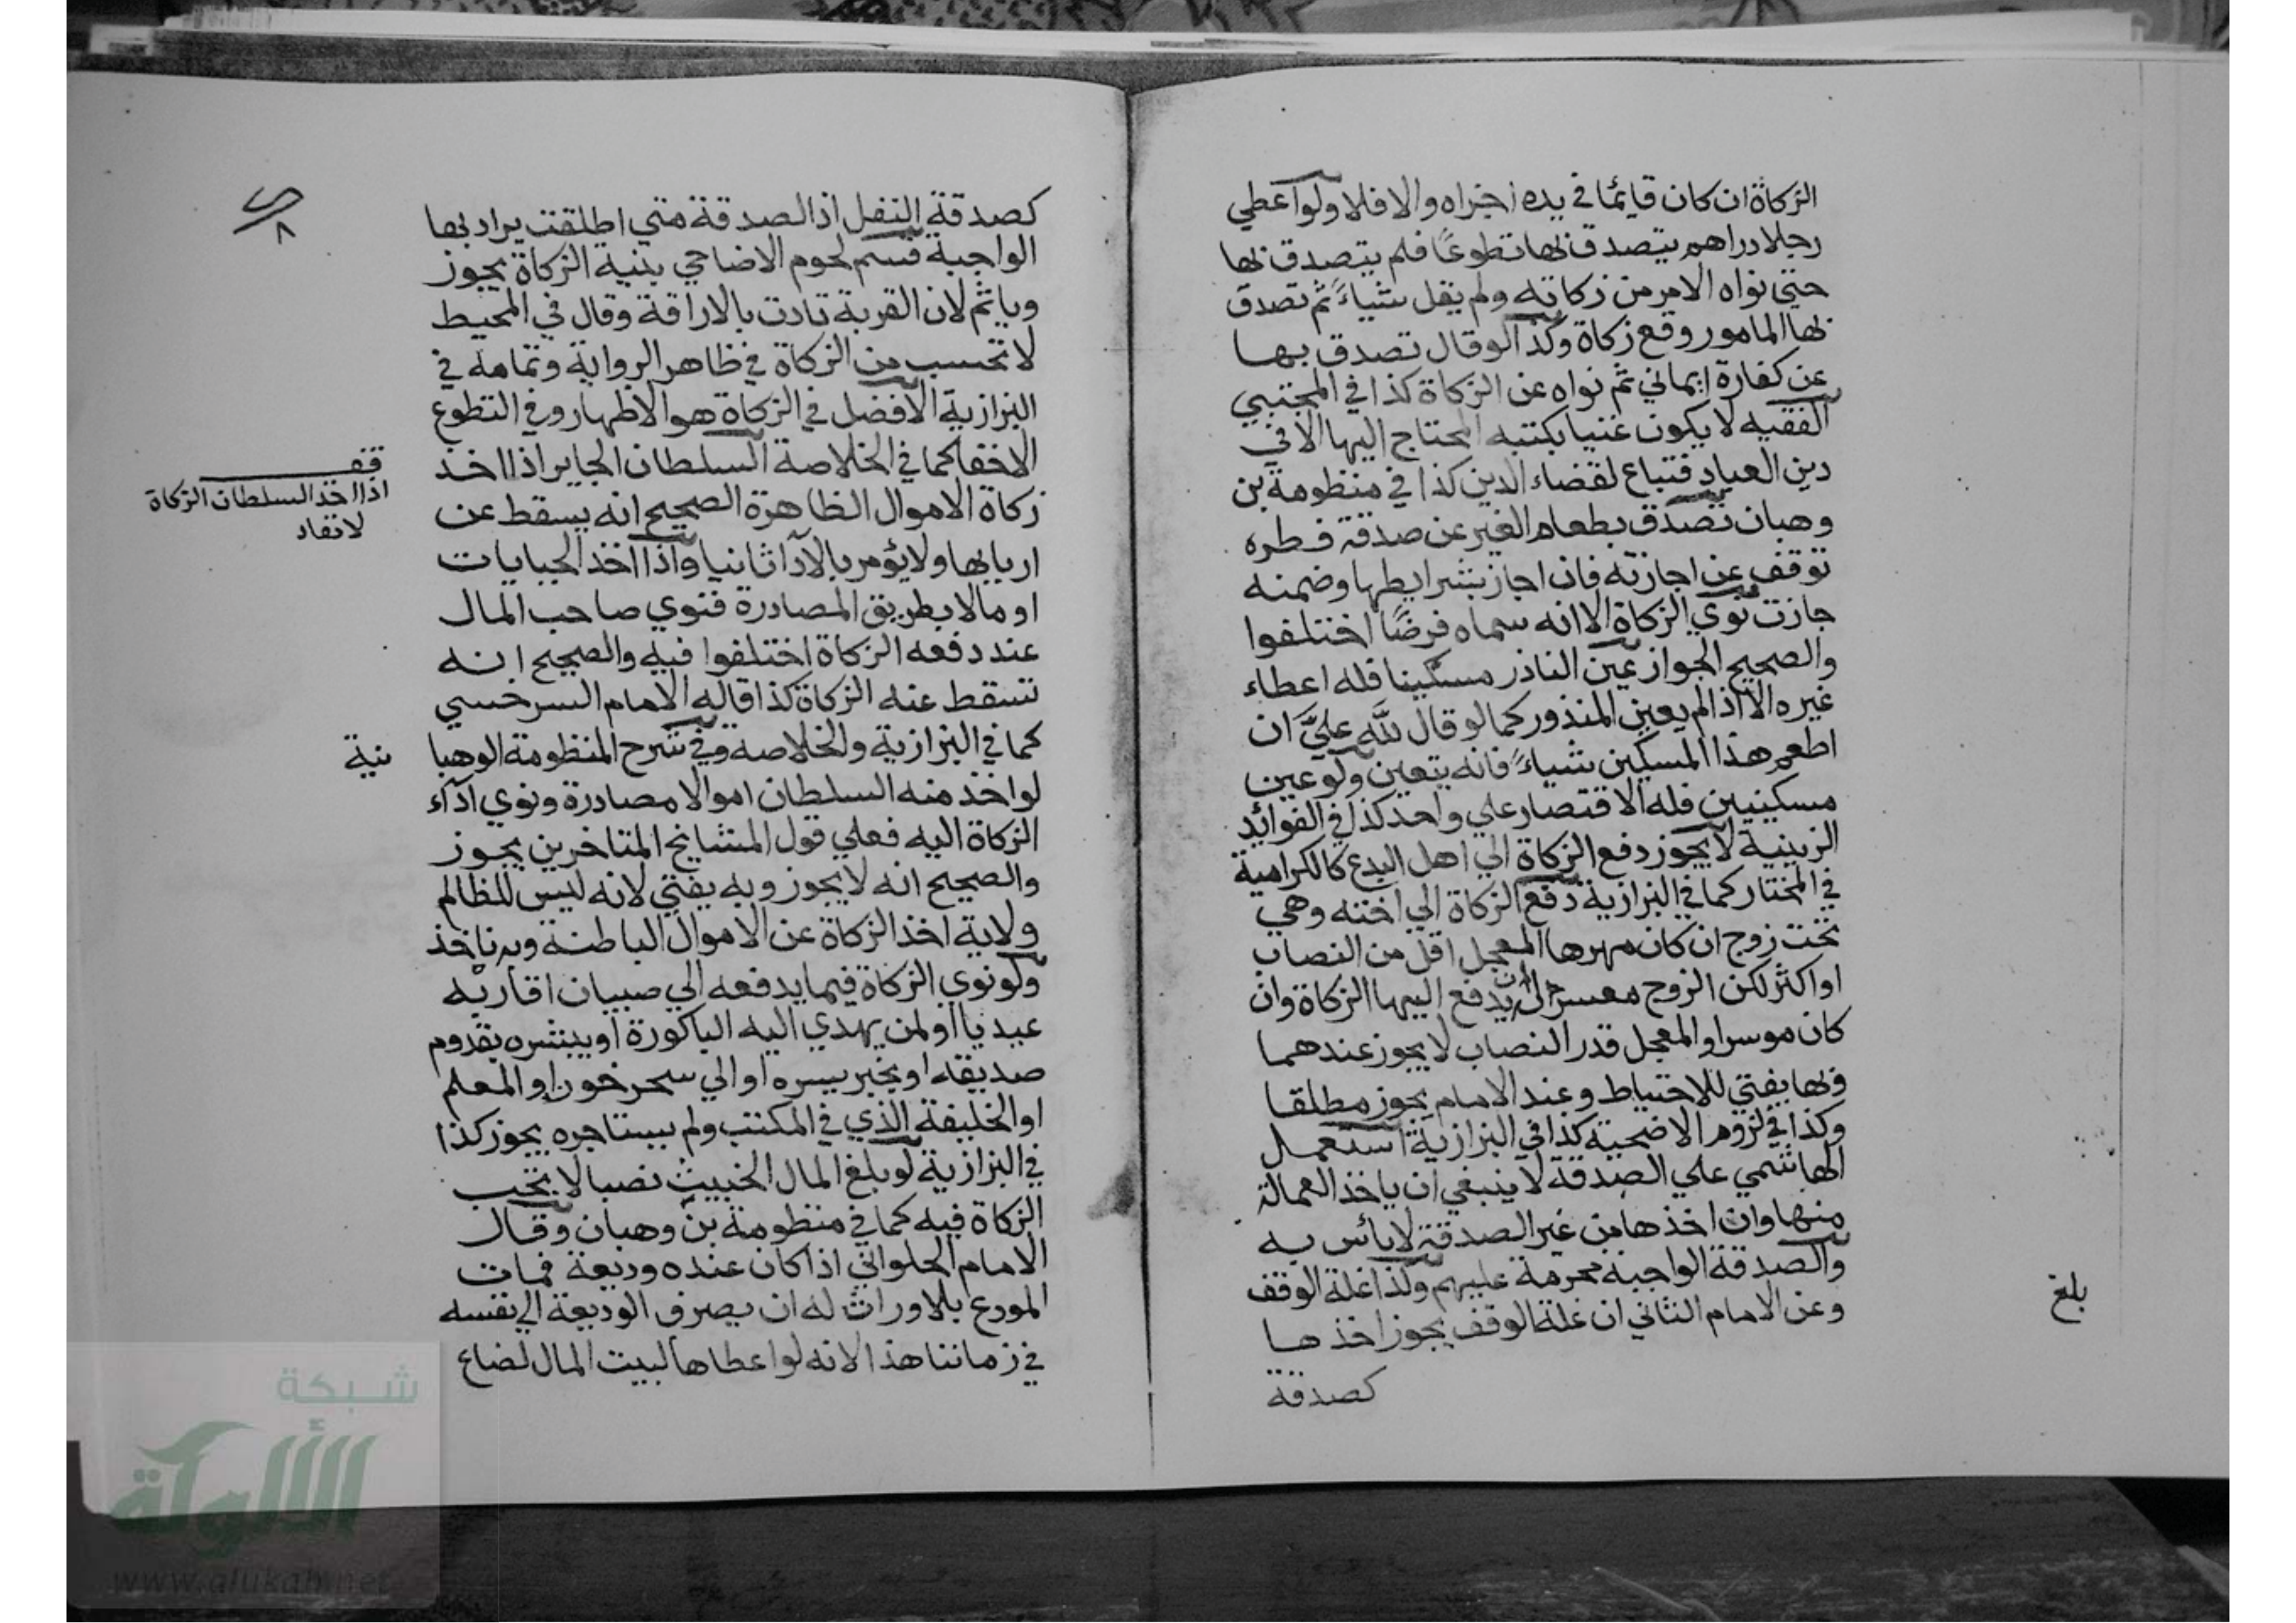 الزكاة ان كان قايمًا في يده اجزاه والا فلا ولو اعطي
رجلا دراهم يتصدق بها تطوعًا فلم يتصدق بها
حتي نواه الامر من زكاته ولم يقل شياءً ثم تصدق
بها المامور وقع زكاة وكذا لو قال تصدق بها
عن كفارة ايماني ثم نواه عن الزكاة كذا في المجتبي
الفقيه لا يكون غنيا بكتبه المحتاج اليها الا في
دين العباد فتباع لقضاء الدين كذا في منظومة بن
وهبان تصدق بطعام الغير عن صدقة فطره
توقف عن اجازته فان اجاز بشرايطها وضمنه
جازت نوي الزكاة الا انه سماه فرضًا اختلفوا
والصحيح الجواز عين الناذر مسكينا فله اعطاء
غيره الا اذا لم يعين المنذور كما لو قال لله عليَّ ان
اطعم هذا المسكين شياءً فانه يتعين ولو عين
مسكينين فله الاقتصار علي واحد كذا في الفوايد
الزينية لا يجوز دفع الزكاة الي اهل البدع كالكرامية
في المختار كما في البزازية دفع الزكاة الي اخته وهي
تحت زوج ان كان مهرها المعجل اقل من النصاب
او اكثر لكن الزوج معسر جاز ان يدفع اليها الزكاة وان
كان موسرا والمعجل قدر النصاب لا يجوز عندهما
وبها يفتي للاحتياط وعند الامام يجوز مطلقا
وكذا في لزوم الاضحية كذا في البزازية استعمل
الهاشمي علي الصدقة لا ينبغي ان ياخذ العمالة
منها وان اخذها من غير الصدقة لا بائس به
والصدقة الواجبة محرمة عليهم ولذا غلة الوقف
وعن الامام الثاني ان غلة الوقف يجوز اخذها
كصدقة
بلغ
كصدقة النفل اذ الصدقة متي اطلقت يراد بها
الواجبة قسم لحوم الاضاحي بنية الزكاة يجوز
وياثم لان القربة تادت بالاراقة وقال في المحيط
لا تحسب من الزكاة في ظاهر الرواية وتمامه في
البزازية الافضل في الزكاة هو الاظهار وفي التطوع
الاخفا كما في الخلاصة السلطان الجاير اذا اخذ
زكاة الاموال الظاهرة الصحيح انه يسقط عن
اربابها ولا يؤمر بالادا ثانيا واذا اخذ الجبايات
او مالا بطريق المصادرة فنوي صاحب المال
عند دفعه الزكاة اختلفوا فيه والصحيح انه
تسقط عنه الزكاة كذا قاله الامام السرخسي
كما في البزازية والخلاصة وفي شرح المنظومة الوهبا نية
لو اخذ منه السلطان اموالا مصادرة ونوي اداء
الزكاة اليه فعلي قول المشايخ المتاخرين يجوز
والصحيح انه لا يجوز وبه يفتي لانه ليس للظالم
ولاية اخذ الزكاة عن الاموال الباطنة وبه ناخذ
ولو نوي الزكاة فيما يدفعه الي صبيان اقاربه
عيديا او لمن يهدي اليه الباكورة او يبشره بقدوم
صديقه او بخبر يسره او الي سحر خون او المعلم
او الخليفة الذي في المكتب ولم يستاجره يجوز كذا
في البزازية لو بلغ المال الخبيث نصبا لا تجب
الزكاة فيه كما في منظومة بن وهبان وقال
الامام الحلواني اذا كان عنده وديعة فمات
المودع بلا وراث له ان يصرف الوديعة الي نفسه
في زماننا هذا لانه لو اعطاها لبيت المال لضاع
قف
اذا اخذ السلطان الزكاة
لا تعاد
شبكة
الألوكة
www.alukah.net